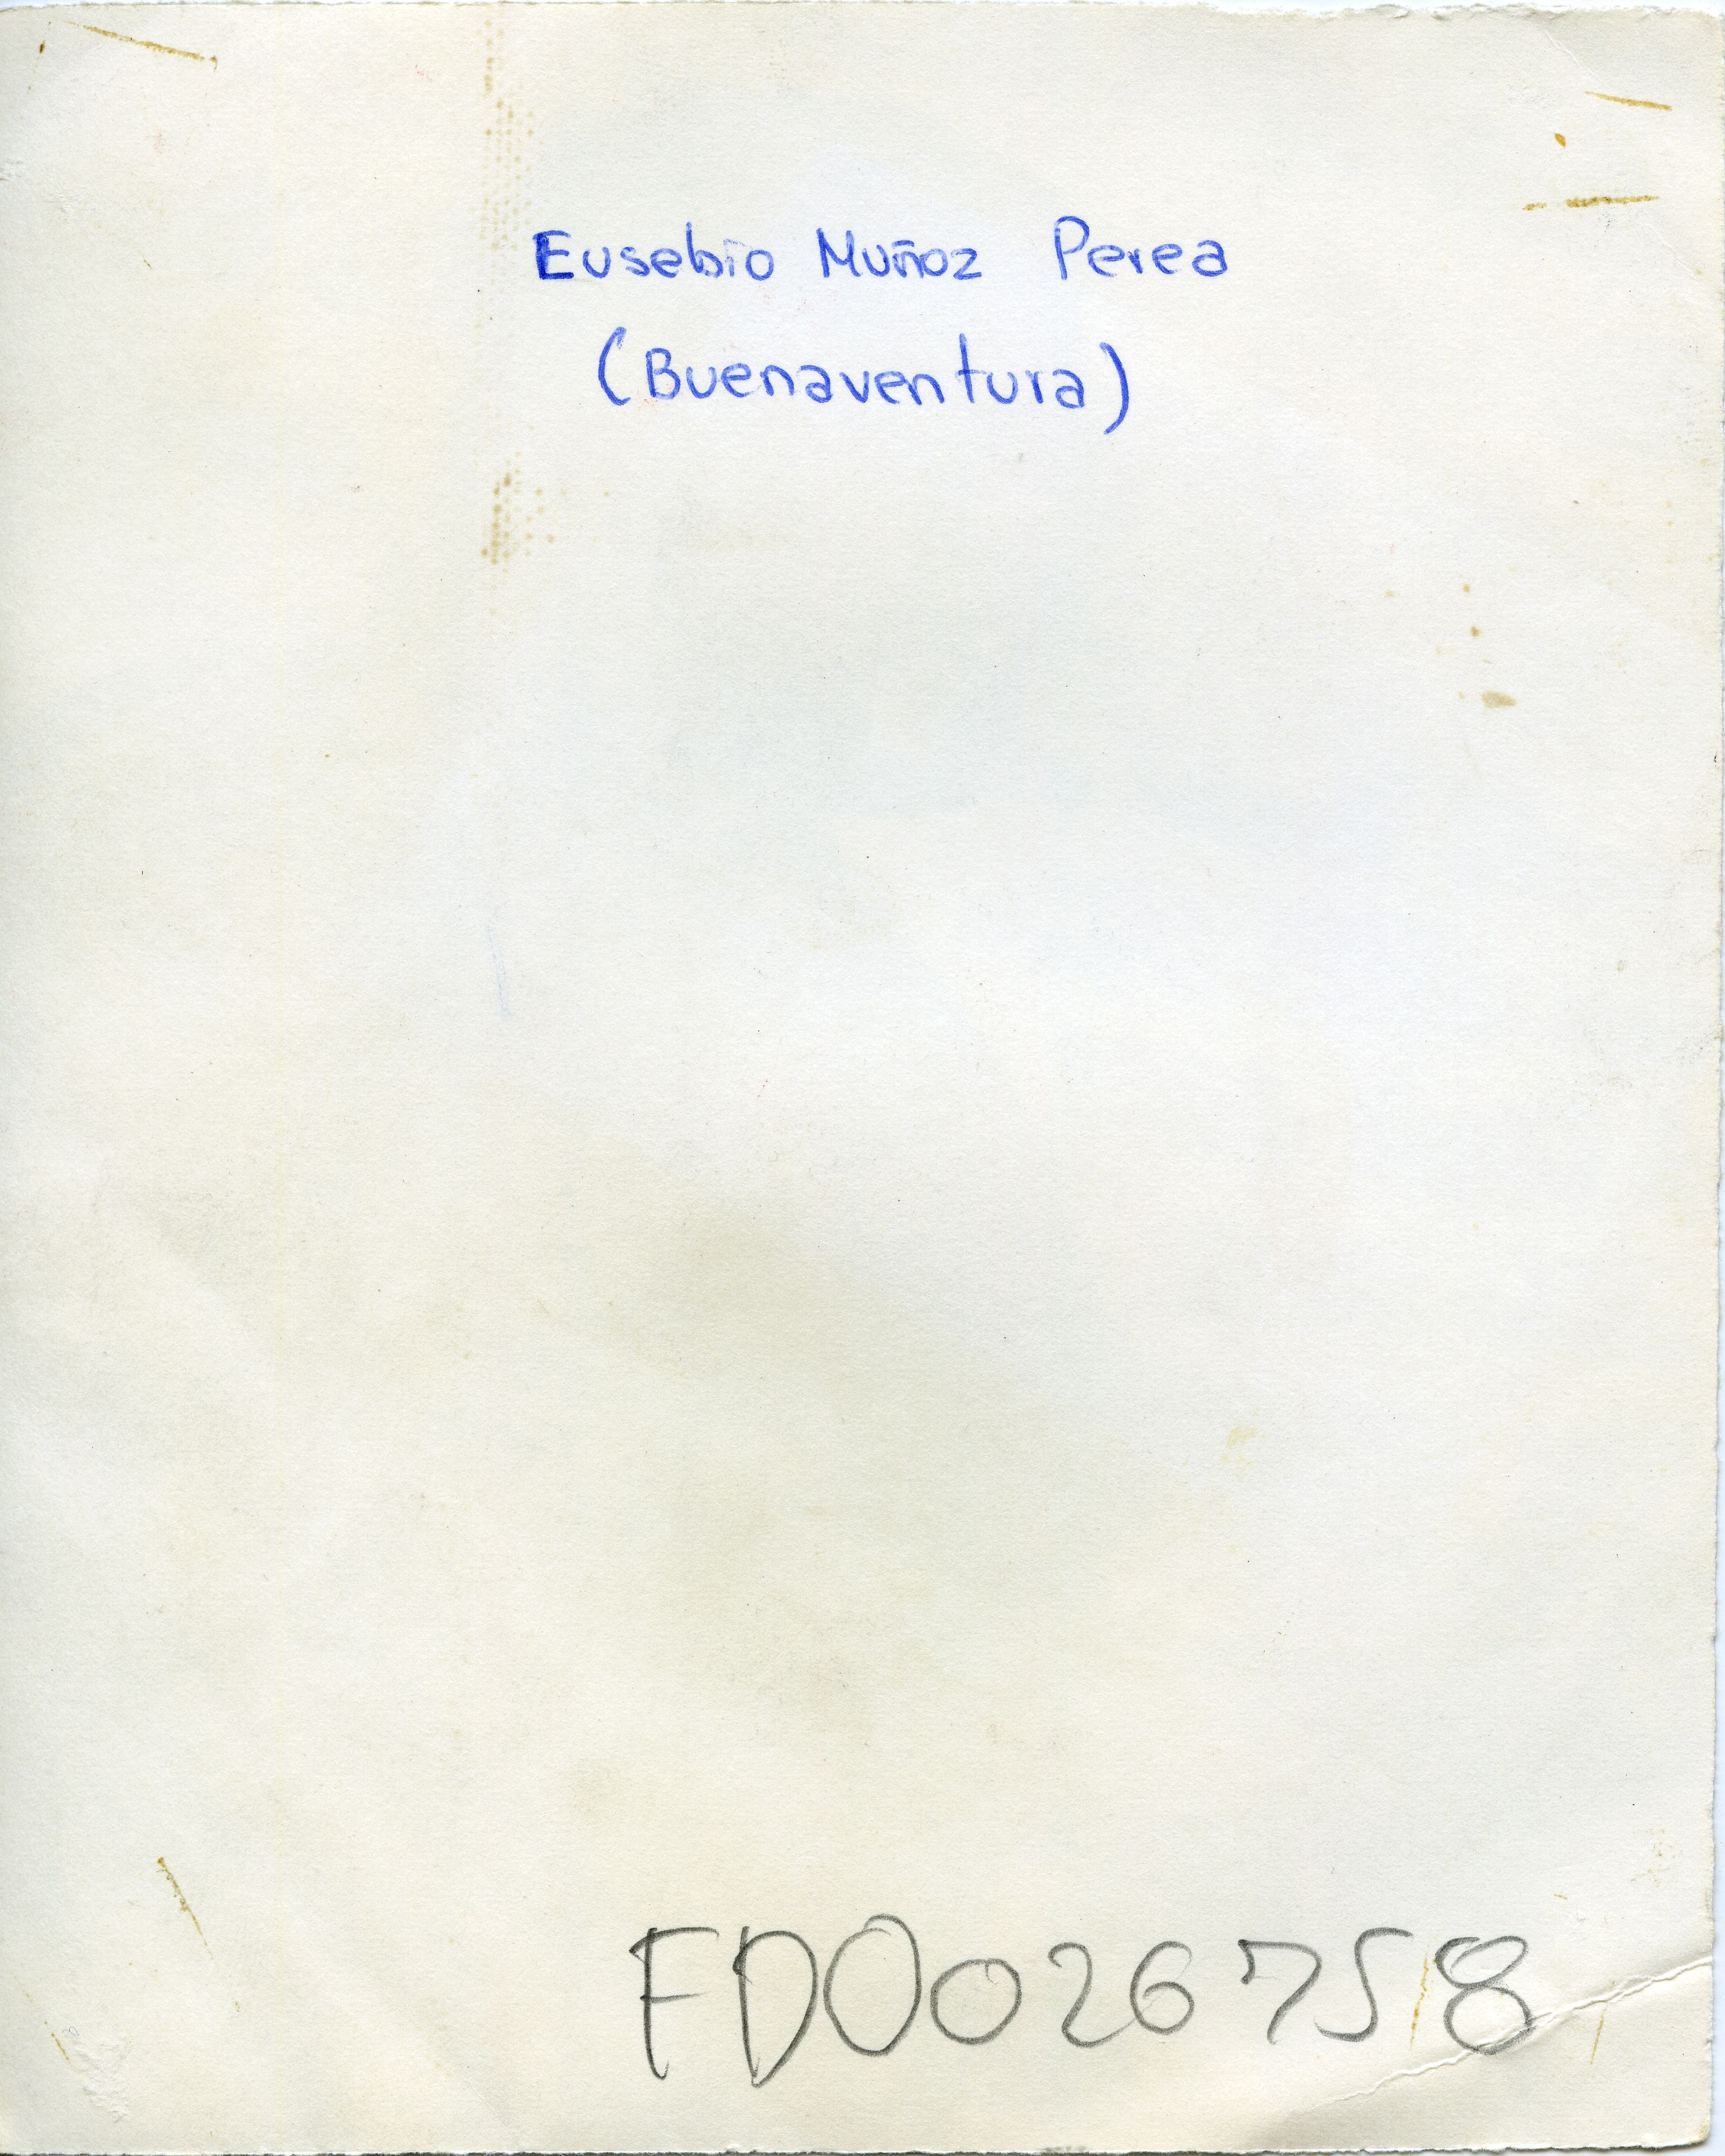 Eusebio Muñoz Perea
(Buenaventura)
FDO026758